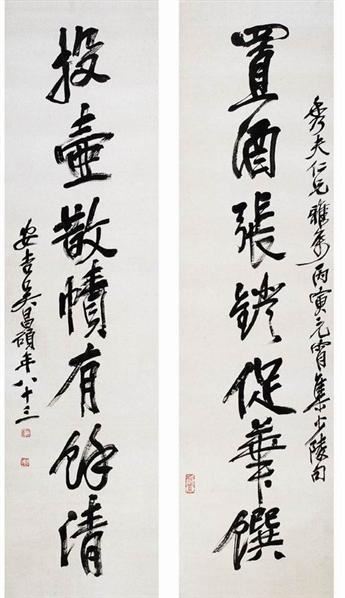 秀夫仁兄雅屬丙寅元宵集少陵句
置酒張鐙促華饌
投壺散幘有餘清
安吉吳昌碩年八十三